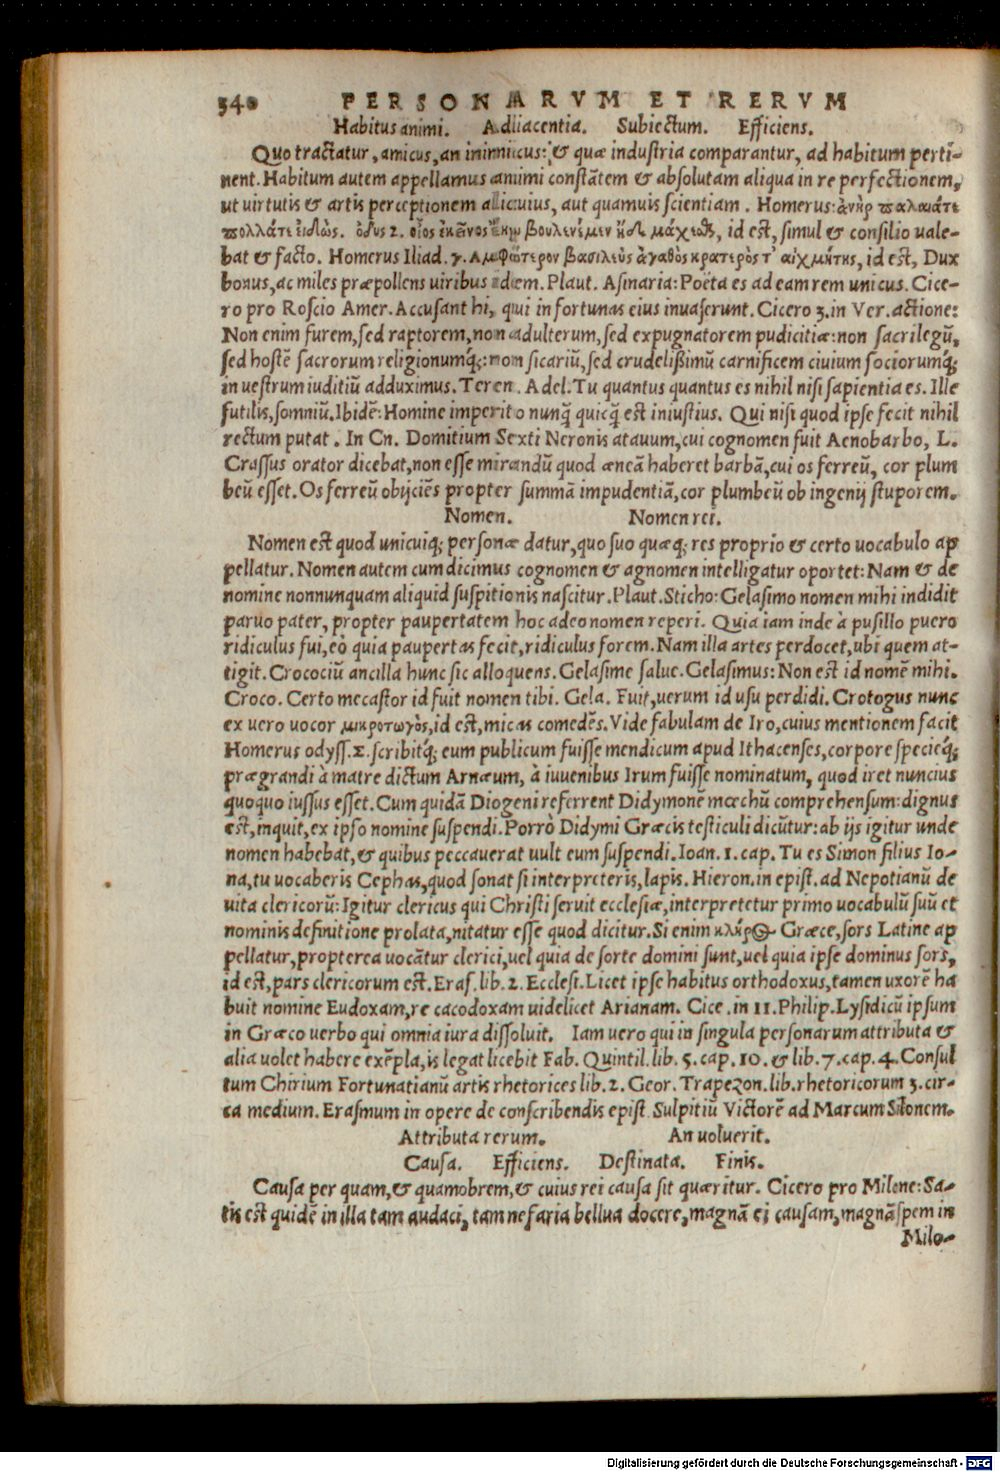 340 PERSONARVM ET RERVM
Habitus animi. Adiacentia. Subiectum. Efficiens.
Quo tractatur, amicus, an inimicus: & quæ industria comparantur, ad habitum perti-
nent. Habitum autem appellamus animi constātem & absolutam aliqua in re perfectionem,
ut uirtutis & artis perceptionem alicuius, aut quamuis scientiam. Homerus: ἀνὴρ παλαιάτε
πολλάτε εἰδὼς. οδυς 2. οἷος βουλευέμεν id est, simul & consilio uale-
bat & facto. Homerus Iliad. γ. Αμφώτερον βασιλεὺς ἀγαθὸς κρατερὸς τ' αἰχμήτης, id est, Dux
bonus, ac miles præpollens uiribus idem. Plaut. Asinaria: Poëta es ad eam rem unicus. Cice-
ro pro Roscio Amer. Accusant hi, qui in fortunas eius inuaserunt. Cicero 3. in Ver. actione:
Non enim furem, sed raptorem, non adulterum, sed expugnatorem pudicitiæ: non sacrilegū,
sed hostē sacrorum religionumq́;: non sicariū, sed crudelißimū carnificem ciuium sociorumq́;
in uestrum iuditiū adduximus. Teren. Adel. Tu quantus quantus es nihil nisi sapientia es. Ille
futilis, somniū. Ibidē: Homine imperito nunq̃ quicq̃ est iniustius. Qui nisi quod ipse fecit nihil
rectum putat. In Cn. Domitium Sexti Neronis atauum, cui cognomen fuit Aenobarbo, L.
Crassus orator dicebat, non esse mirandū quod æneā haberet barbā, cui os ferreū, cor plum
beū esset. Os ferreū obijciēs propter summā impudentiā, cor plumbeū ob ingenij stuporem.
Nomen. Nomen rei.
Nomen est quod unicuiq; personæ datur, quo suo quæq; res proprio & certo uocabulo ap
pellatur. Nomen autem cum dicimus cognomen & agnomen intelligatur oportet: Nam & de
nomine nonnunquam aliquid suspitionis nascitur. Plaut. Sticho: Gelasimo nomen mihi indidit
paruo pater, propter paupertatem hoc adeo nomen reperi. Quia iam inde à pusillo puero
ridiculus fui, eò quia paupertas fecit, ridiculus forem. Nam illa artes perdocet, ubi quem at-
tigit. Crocociū ancilla hunc sic alloquens. Gelasime salue. Gelasimus: Non est id nomē mihi.
Croco. Certo mecastor id fuit nomen tibi. Gela. Fuit, uerum id usu perdidi. Crotogus nunc
ex uero uocor μικροτωγὸς, id est, micas comedēs. Vide fabulam de Iro, cuius mentionem facit
Homerus odyss. Σ. scribitq́; eum publicum fuisse mendicum apud Ithacenses, corpore specieq́;
prægrandi à matre dictum Arnæum, à iuuenibus Irum fuisse nominatum, quod iret nuncius
quoquo iussus esset. Cum quidā Diogeni referrent Didymonē mœchū comprehensum: dignus
est, inquit, ex ipso nomine suspendi. Porrò Didymi Græcis testiculi dicūtur: ab ijs igitur unde
nomen habebat, & quibus peccauerat uult eum suspendi. Ioan. 1. cap. Tu es Simon filius Io-
na, tu uocaberis Cephas, quod sonat si interpreteris, lapis. Hieron. in epist. ad Nepotianū de
uita clericorū: Igitur clericus qui Christi seruit ecclesiæ, interpretetur primo uocabulū suū et
nominis definitione prolata, nitatur esse quod dicitur. Si enim κλῆρος Græce, sors Latine ap
pellatur, propterea uocātur clerici, uel quia de sorte domini sunt, uel quia ipse dominus sors,
id est, pars clericorum est. Eras. lib. 2. Ecclesi. Licet ipse habitus orthodoxus, tamen uxorē ha
buit nomine Eudoxam, re cacodoxam uidelicet Arianam. Cice. in 11. Philip. Lysidicū ipsum
in Græco uerbo qui omnia iura dissoluit. Iam uero qui in singula personarum attributa &
alia uolet habere exēpla, is legat licebit Fab. Quintil. lib. 5. cap. 10. & lib. 7. cap. 4. Consul
tum Chirium Fortunatianū artis rhetorices lib. 2. Geor. Trapezon. lib. rhetoricorum 3. cir-
ca medium. Erasmum in opere de conscribendis epist. Sulpitiū Victorē ad Marcum Silonem.
Attributa rerum. An uoluerit.
Causa. Efficiens. Destinata. Finis.
Causa per quam, & quamobrem, & cuius rei causa sit quæritur. Cicero pro Milone: Sa-
tis est quidē in illa tam audaci, tam nefaria bellua docere, magnā ei causam, magnā spem in
Milo-
Digitalisierung gefördert durch die Deutsche Forschungsgemeinschaft - DFG